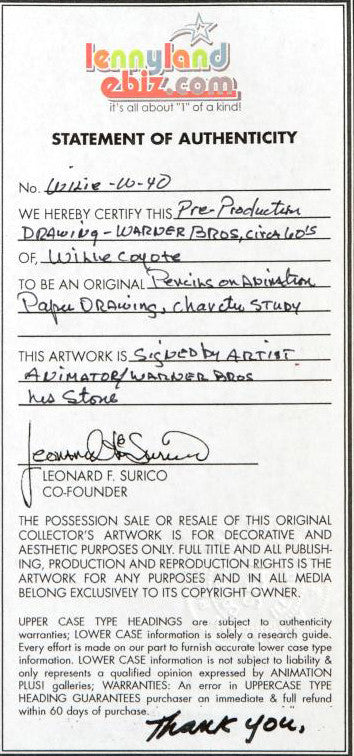 lennyland
ebiz.com
it's all about "1" of a kind!
STATEMENT OF AUTHENTICITY
No. Willie-W-40
WE HEREBY CERTIFY THIS Pre-Production
DRAWING - WARNER BROS, circa 60's
OF, Willie Coyote
TO BE AN ORIGINAL Pencils on Animation
Paper DRAWING, STUDY
THIS ARTWORK IS Signed by ARTIST
ANIMATOR/WARNER BROS
Stone
Leonard F. Surico
LEONARD F. SURICO
CO-FOUNDER
THE POSSESSION SALE OR RESALE OF THIS ORIGINAL
COLLECTOR'S ARTWORK IS FOR DECORATIVE AND
AESTHETIC PURPOSES ONLY. FULL TITLE AND ALL PUBLISH-
ING, PRODUCTION AND REPRODUCTION RIGHTS IS THE
ARTWORK FOR ANY PURPOSES AND IN ALL MEDIA
BELONG EXCLUSIVELY TO ITS COPYRIGHT OWNER.
UPPER CASE TYPE HEADINGS are subject to authenticity
warranties; LOWER CASE information is solely a research guide.
Every effort is made on our part to furnish accurate lower case type
information. LOWER CASE information is not subject to liability &
only represents a qualified opinion expressed by ANIMATION
PLUS! galleries; WARRANTIES: An error in UPPERCASE TYPE
HEADING GUARANTEES purchaser an immediate & full refund
within 60 days of purchase.
Thank you,